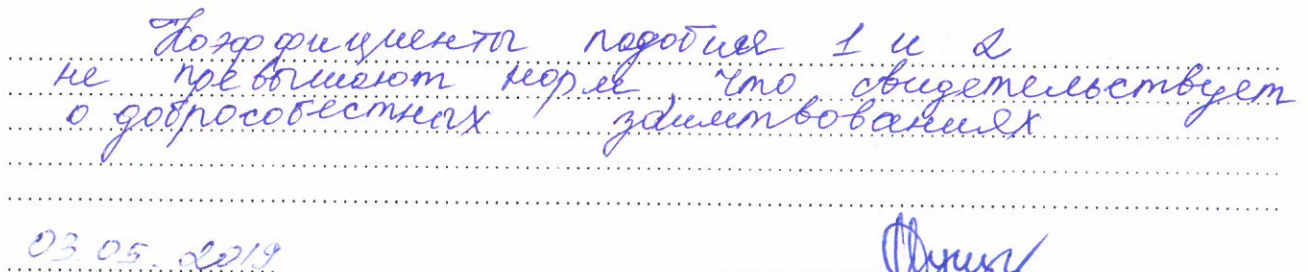 Коэффициенты подобия 1 и 2
не превышают норм, что свидетельствует
о добросовестных заимствованиях
03.05.2019